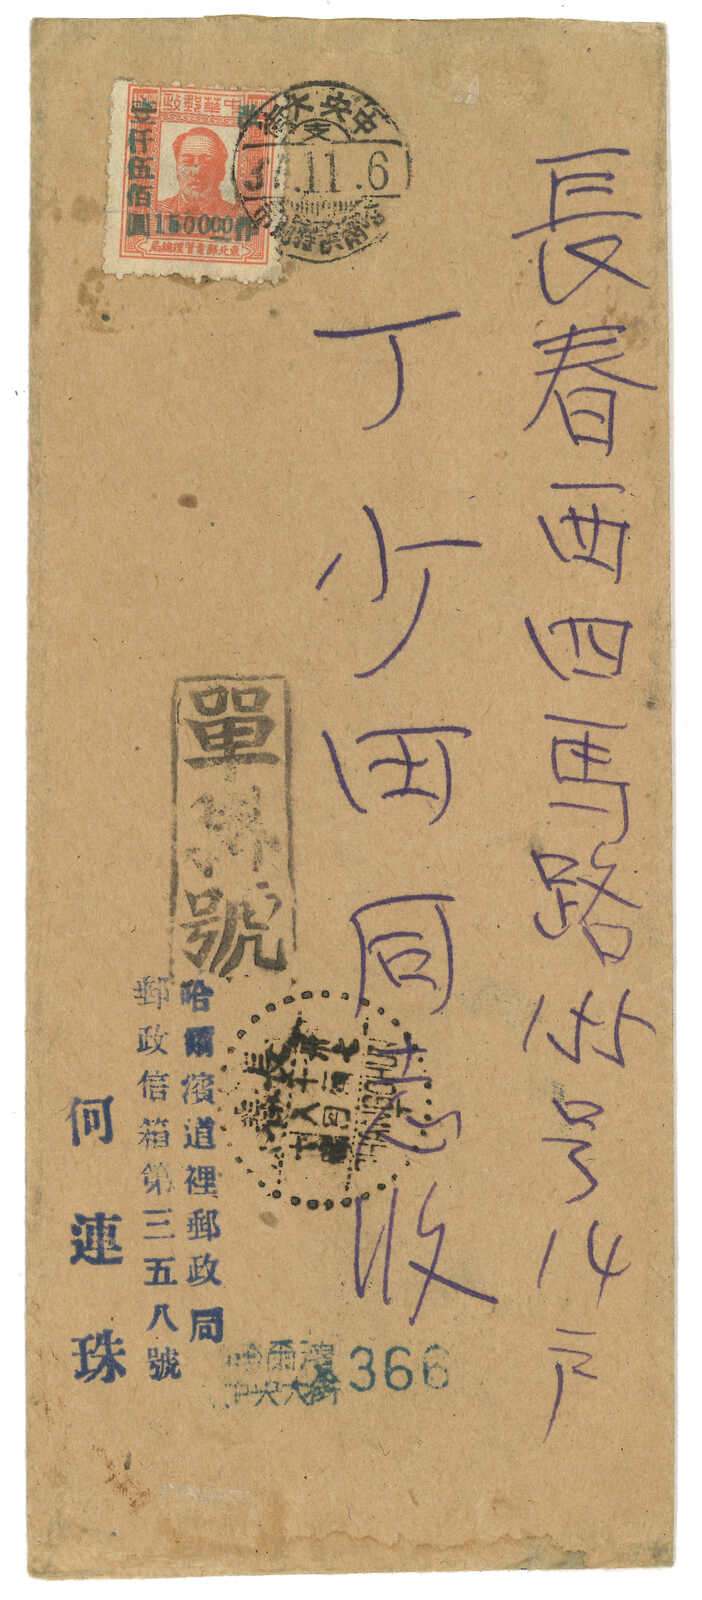 長春西四馬路
号14户
丁少田同志收
中華郵政
壹仟伍佰圓
150000
東北郵電管理總局
中央大
支
11.6
單掛號
哈爾濱道裡郵政局
郵政信箱第三五八號
何連珠
長春
哈爾濱
中央大街
366